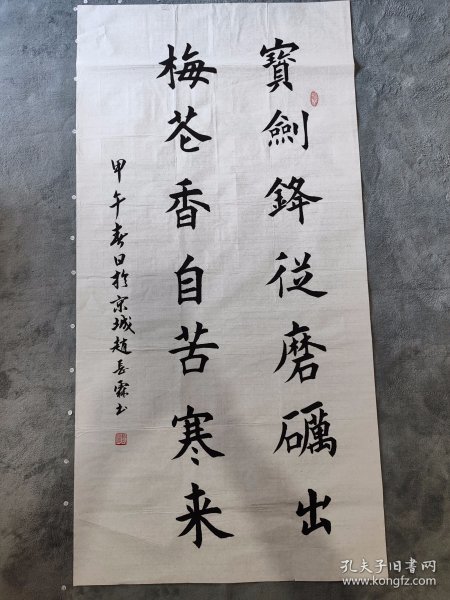 寶劍鋒從磨礪出
梅花香自苦寒来
甲午春日於京城趙長霖书
孔夫子旧书网
www.kongfz.com